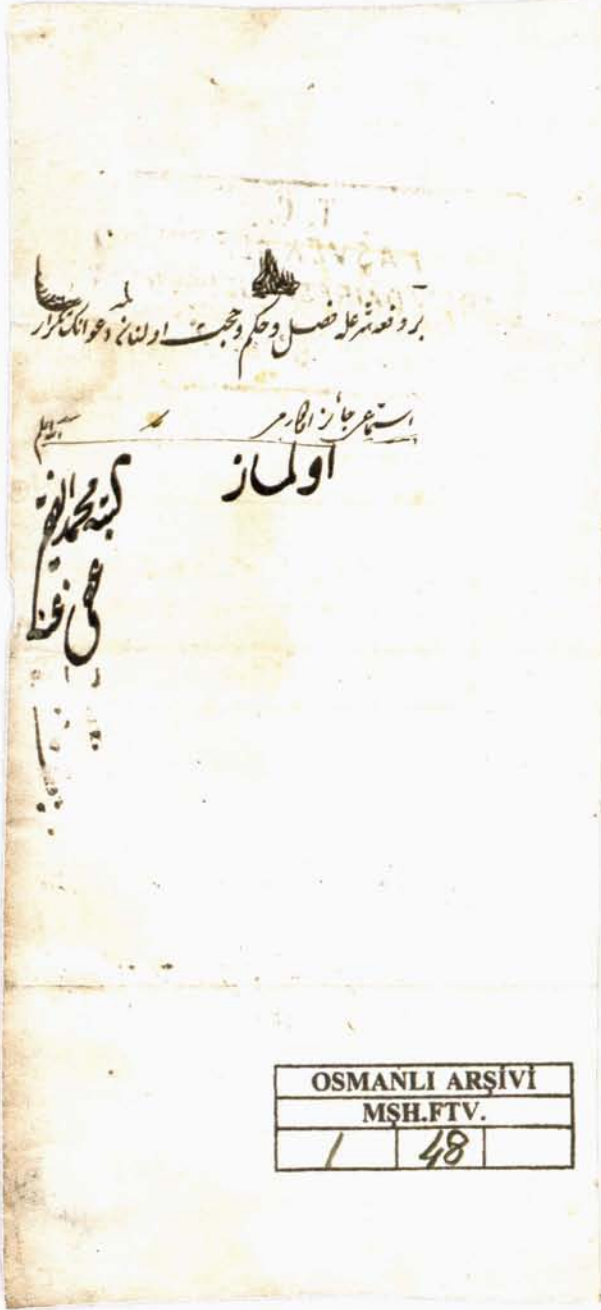 بر دفعه شرعله فصل و حكم و حجت اولنان دعوانك تكرار
استماعى جائز اولورمى
الله اعلم
اولماز
كتبه محمد الفقير
عفى عنه
OSMANLI ARŞİVİ
MŞH.FTV.
1 48